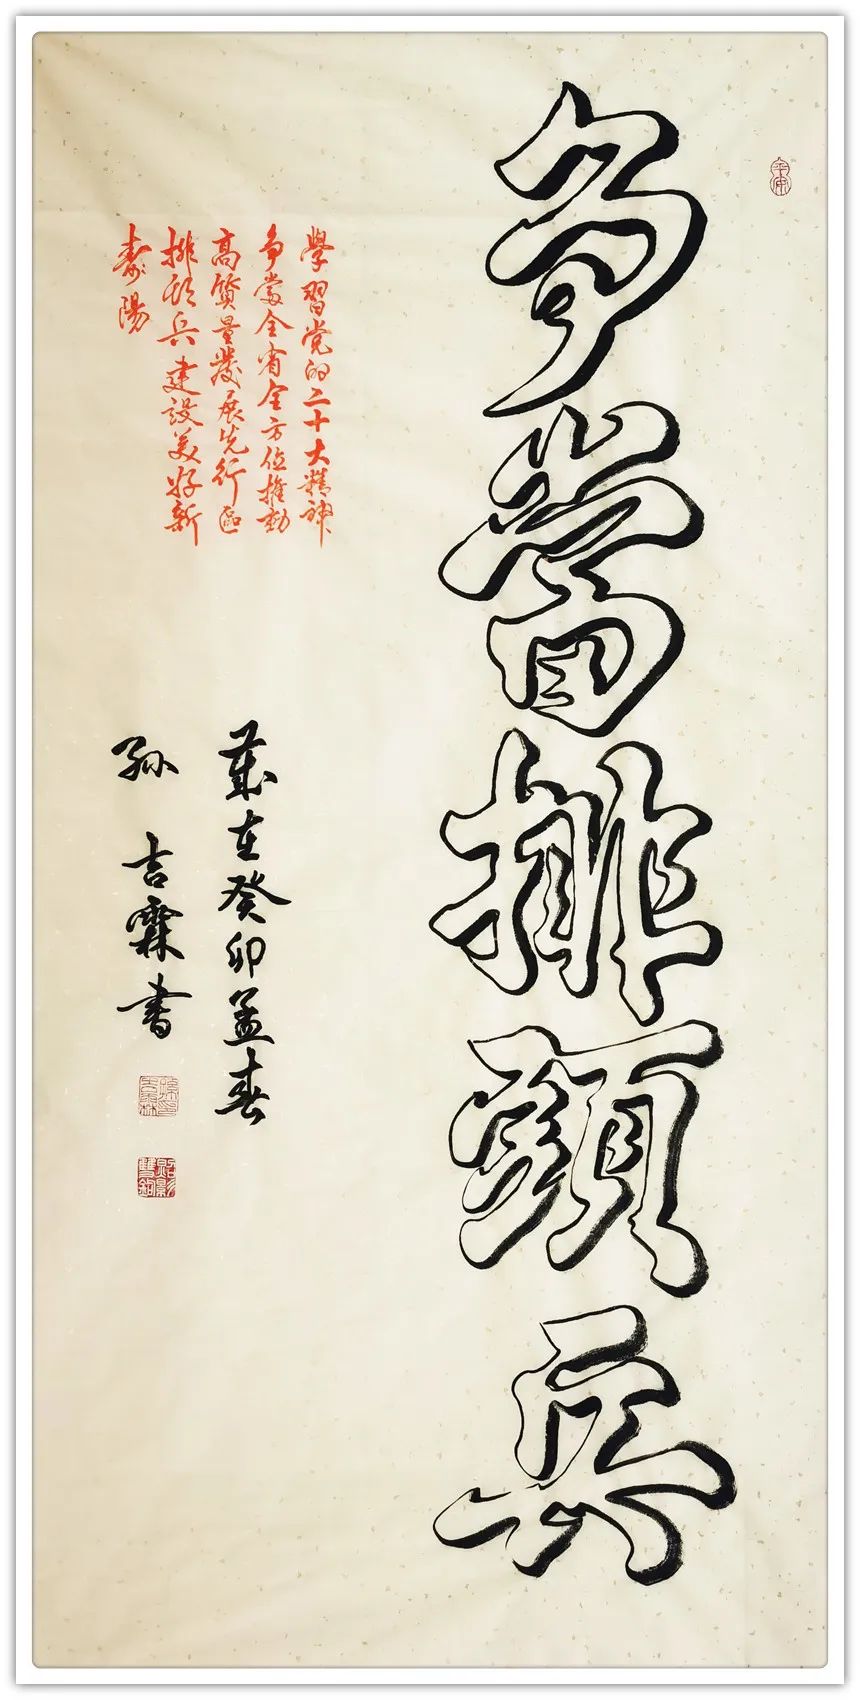 争當排頭兵
學習党的二十大精神
争當全省全方位推動
高質量發展先行區
排頭兵建設美好新
壽陽
歲在癸卯孟春
孫吉霖書